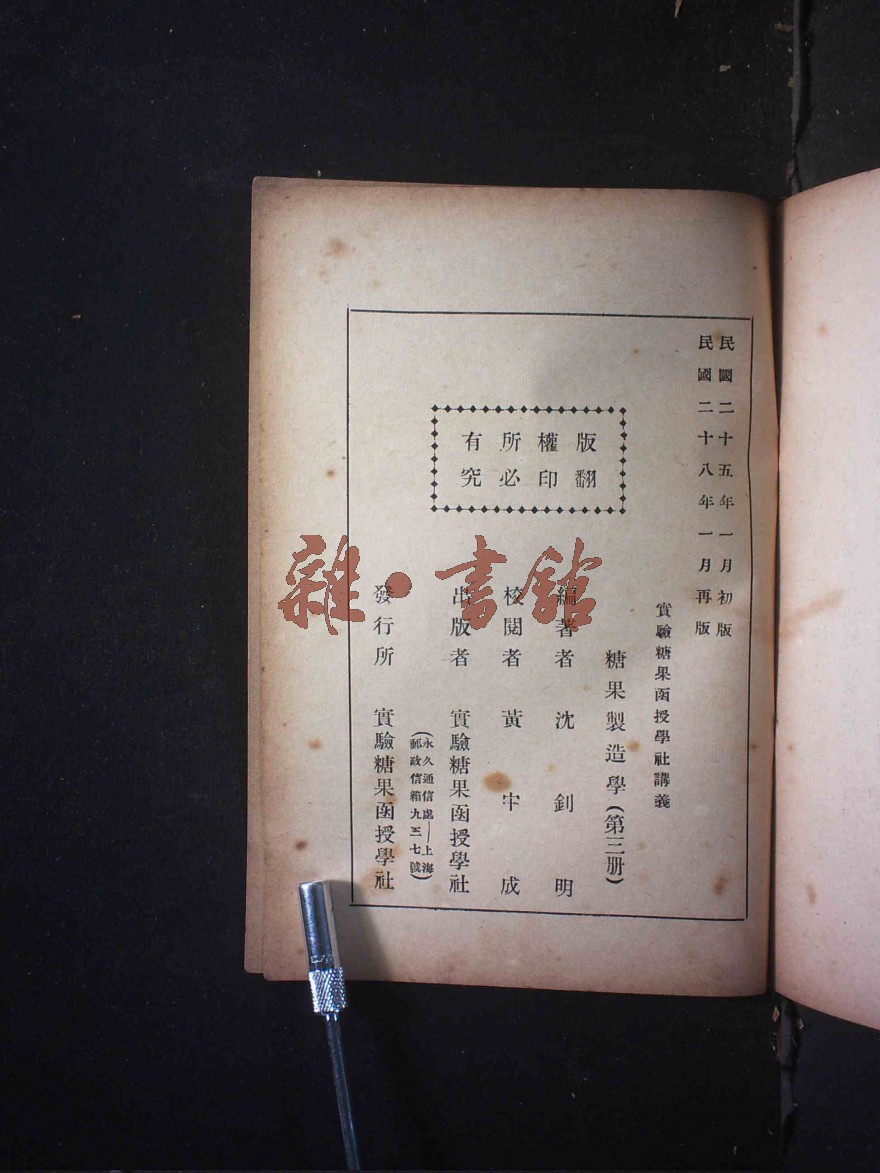 民國二十五年一月初版
民國二十八年一月再版
實驗糖果函授學社講義
糖果製造學(第三册)
版權所有
翻印必究
編著者 沈釗明
校閱者 黃宇成
出版者 實驗糖果函授學社
(永久通信處—上海
郵政信箱九三七號)
發行所 實驗糖果函授學社
雜·書館